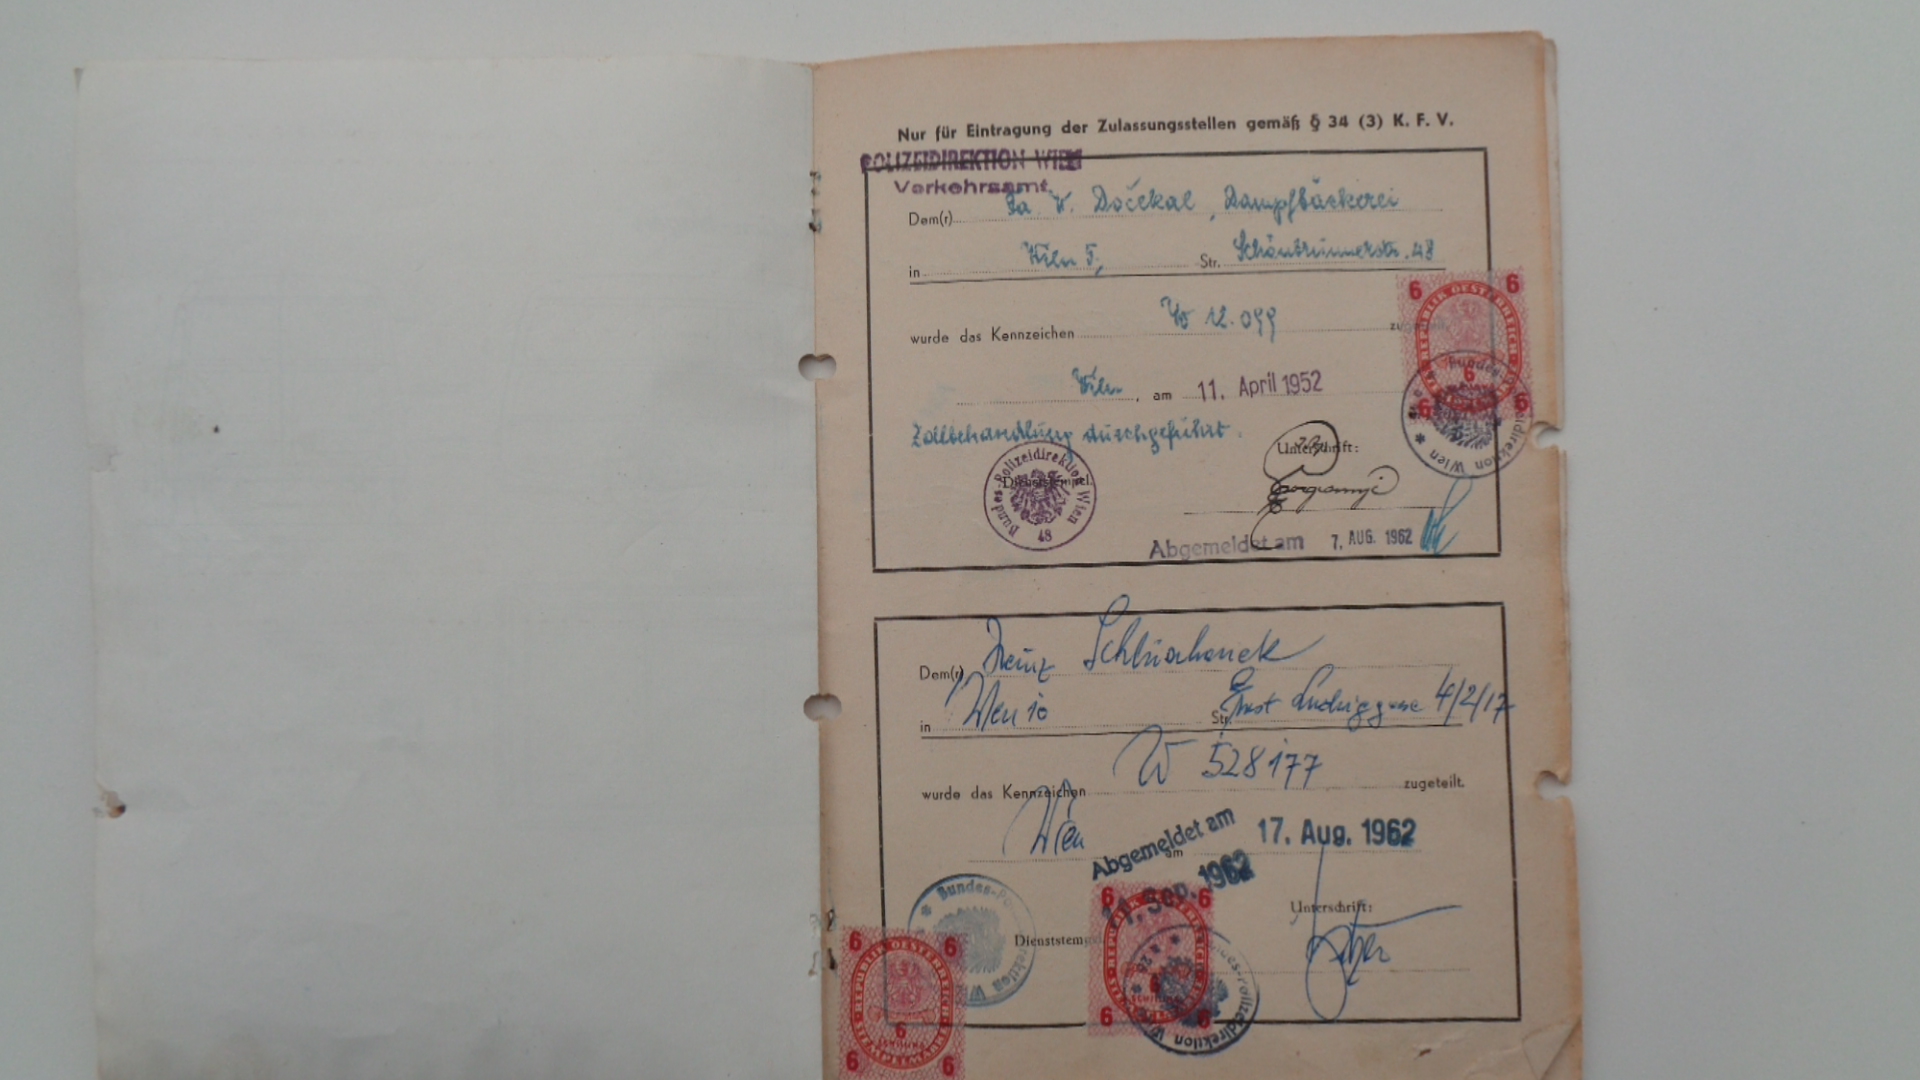 Nur für Eintragung der Zulassungsstellen gemäß § 34 (3) K. F. V.
POLIZEIDIREKTION WIEN
Verkehrsamt
Dem(r) Fa V. Dočekal, Dampfbäckerei
in Wien 5, Str. Schönbrunnerstr. 48
wurde das Kennzeichen W 12.099 zugeteilt.
Wien, am 11. April 1952
Zollbehandlung durchgeführt.
Unterschrift:
Dienststempel
Bundes-Polizeidirektion Wien
48
Abgemeldet am 7. AUG. 1962
REPUBLIK OESTERREICH
6 6 6 6 6
Bundes-Polizeidirektion Wien
Dem(r) Heinz
in Wien 10 Str. Ernst Ludwiggasse 4/2/17
wurde das Kennzeichen W 528177 zugeteilt.
Wien am 17. Aug. 1962
Abgemeldet am
11. Sep. 1962
Unterschrift:
Dienststempel
Bundes-Polizeidirektion Wien
REPUBLIK OESTERREICH
6 6 6 6 6
STEMPELMARKE
REPUBLIK OESTERREICH
6 6 6 6
SCHILLING
Bundes-Polizeidirektion Wien